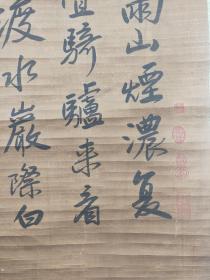 雨山煙濃复
宜騎驢来看
渡水巖際白